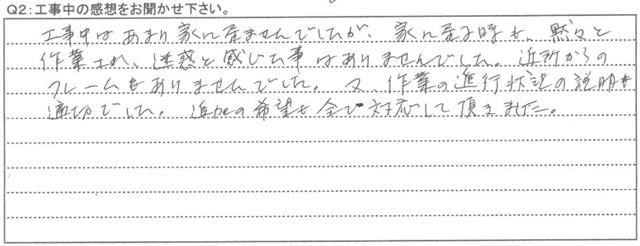 Q2:工事中の感想をお聞かせ下さい。
工事中はあまり家に居ませんでしたが、家に居る時も、黙々と
作業され、迷惑と感じた事はありませんでした。近所からの
クレームもありませんでした。又、作業の進行状況の説明も
適切でした。追加の希望も全て対応して頂きました。